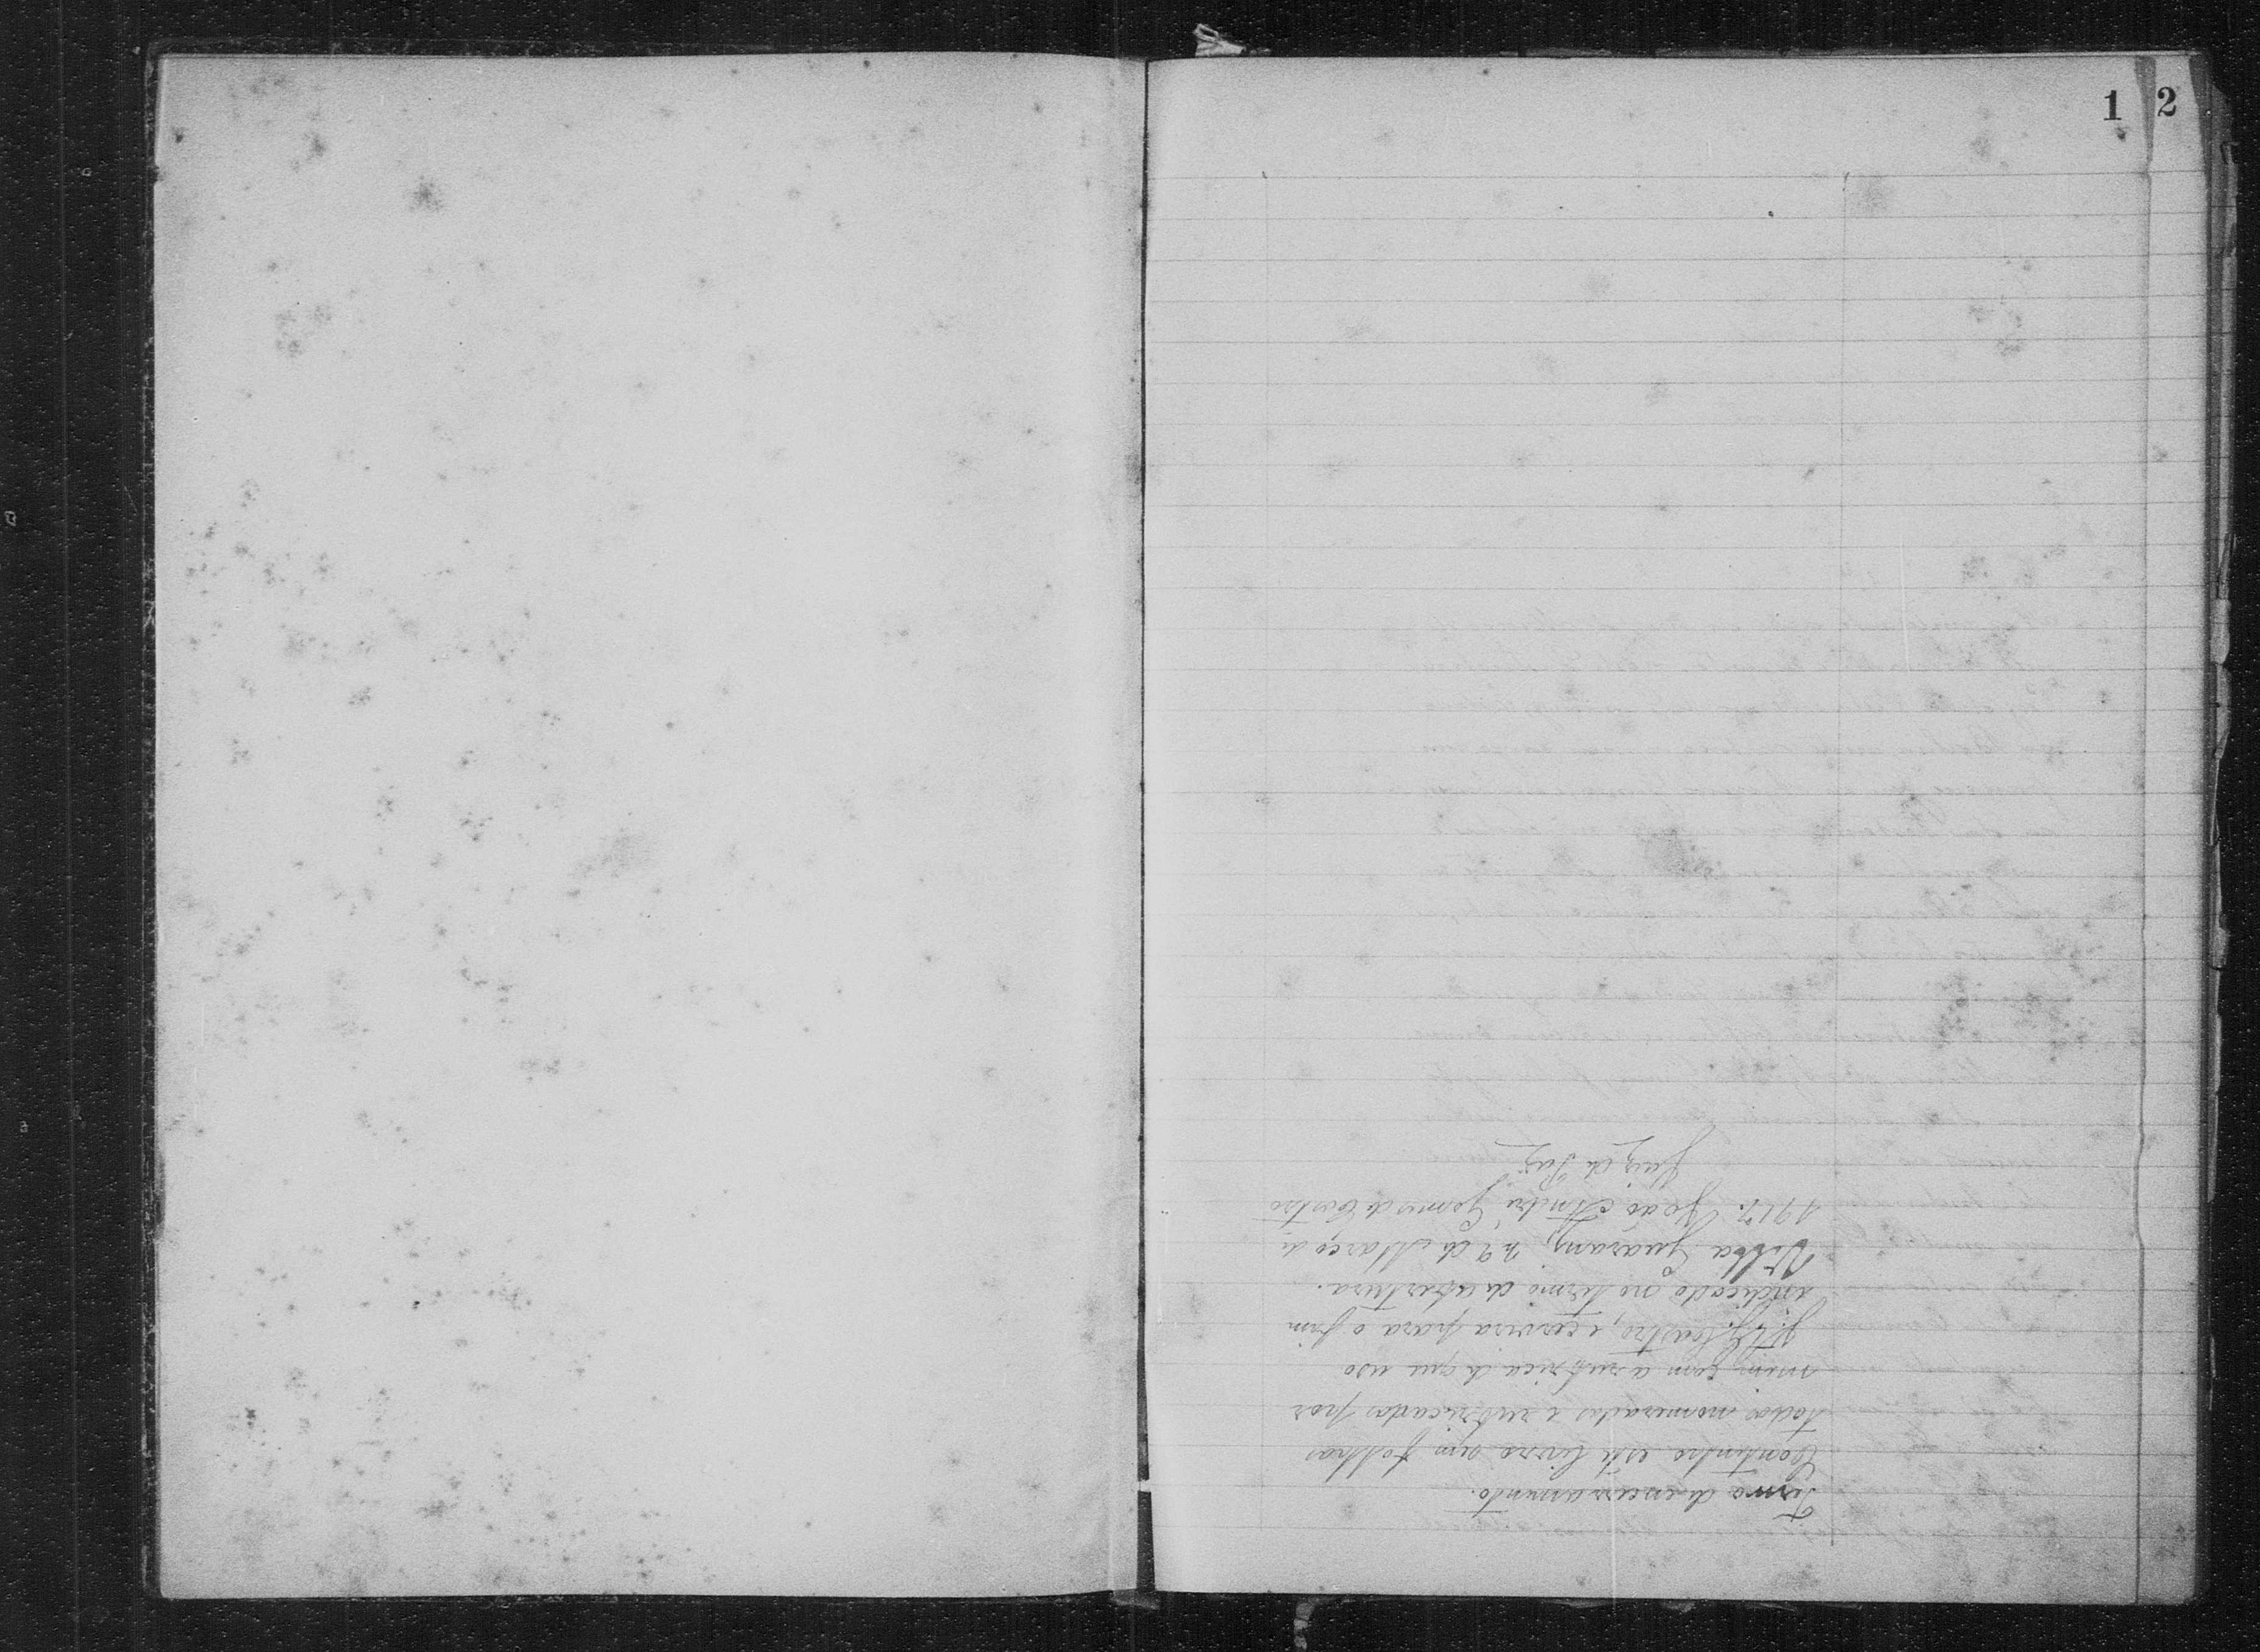 1 2
Termo de encerramento.
Contendo este livro cem folhas
todas nomeradas e rubricadas por
mim com a rubrica de que uso
J. A. G. Castro, e servira para o fim
indicado no termo de abertura.
Villa Guarany, 29 de Março de
1917. João André Gomes de Castro
Juiz de Paz